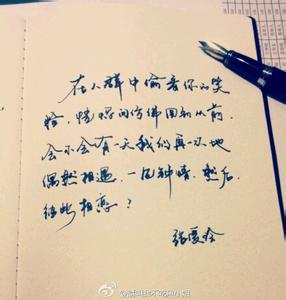 在人群中偷看你的笑
脸，恍惚间仿佛回到从前，
会不会有一天我们再一次地
偶然相遇，一见钟情，然后，
彼此相恋？
张爱玲